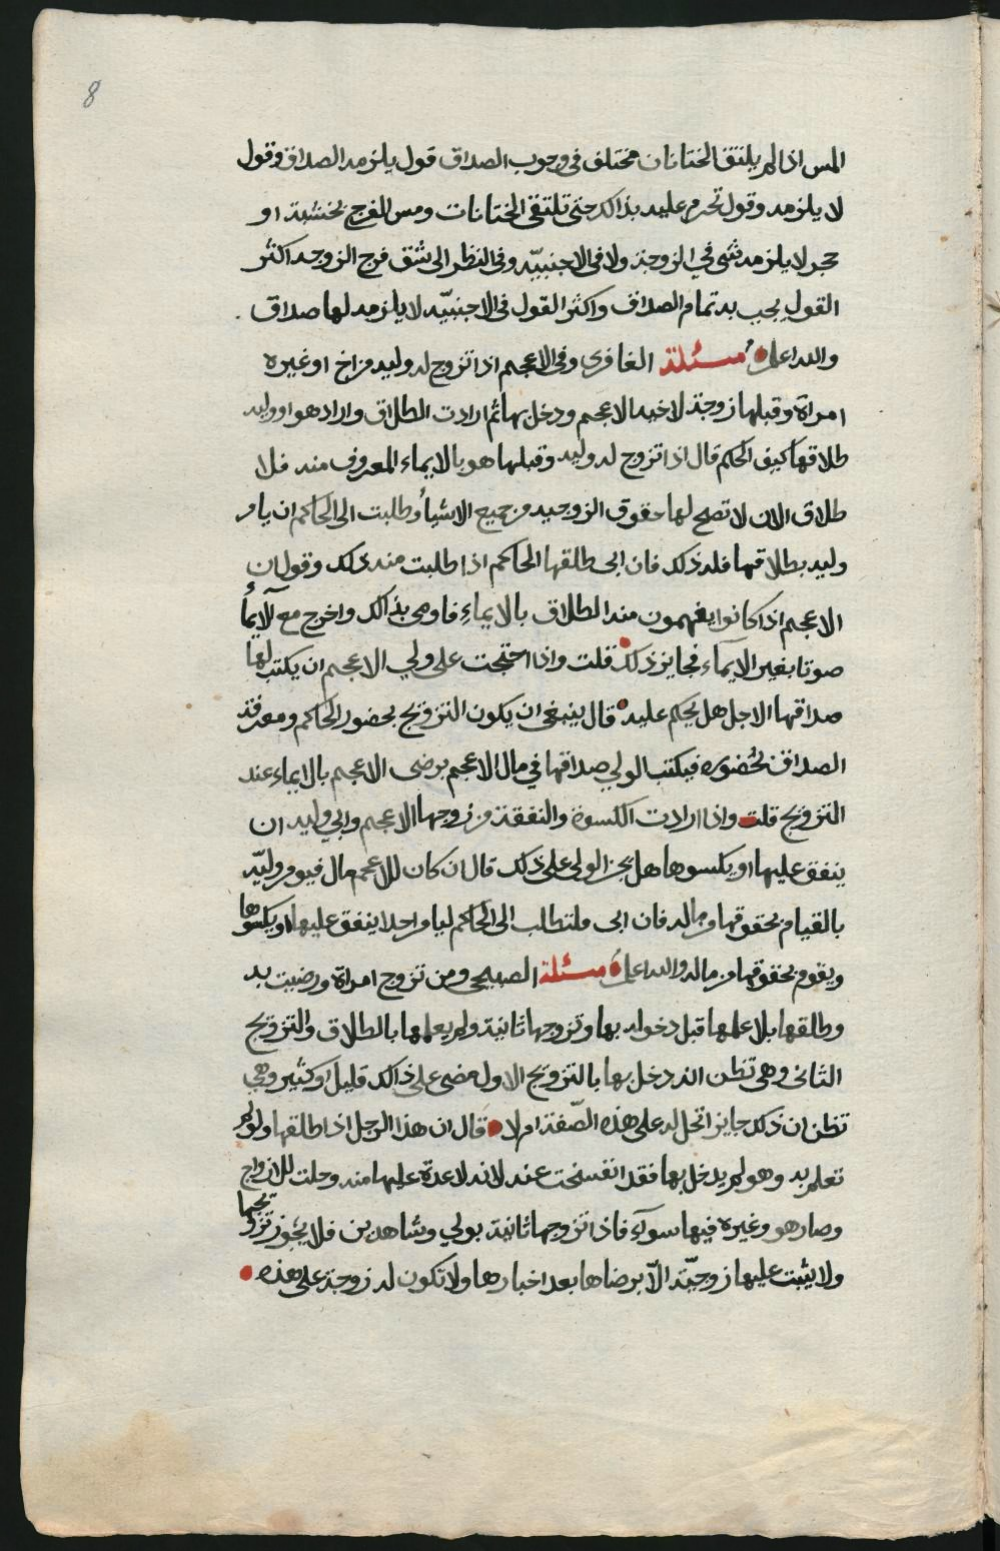 8
المس اذا لم يلتق الختانان مختلف في وجوب الصداق قول يلزمه الصداق وقول
لا يلزمه وقول تحرم عليه بذالك حتى تلتقي الختانات ومس الفرج بخشبة او
حجر لا يلزمه شي في الزوجة ولا في الاجنبيّه وفي النظر الى شق فرج الزوجه اكثر
القول يجب به تمام الصداق واكثر القول في الاجنبيّه لا يلزمه لها صداق .
والله اعلم مسئلة الغافري وفي الاعجم اذا تزوج له وليه من اخ او غيره
امراة وقبلها زوجة لاخيه الاعجم ودخل بها ثم ارادت الطلاق واراد هو او وليه
طلاقها كيف الحكم قال اذا تزوج له وليه وقبلها هو بالايماء المعروف منه فلا
طلاق الان لا تصح لها حقوق الزوجيه من جميع الاشيأ وطلبت الى الحاكم ان يامر
وليه بطلاقها فله ذلك فان ابى طلقها الحاكم اذا طلبت منه ذلك وقول ان
الاعجم اذا كانوا يفهمون منه الطلاق بالايماءِ فاومى بذالك واخرج مع الايمأ
صوتا بغير الايمآء فجايز ذلك قلت واذا احتجت على ولي الاعجم ان يكتب لها
صداقها الاجل هل يحكم عليه قال ينبغي ان يكون التزويج بحضور الحاكم ومعرفة
الصداق بحضوره فيكتب الولي صداقها في مال الاعجم برضى الاعجم بالايماء عند
التزويج قلت واذا ارادت الكسوة والنفقة من زوجها الاعجم وابي وليه ان
ينفق عليها او يكسوها هل يجبر الولي على ذلك قال ان كان للاعجم مال فيومر وليّه
بالقيام بحقوقها من ماله فان ابى ولتطلب الى الحاكم ليامر احدا ينفق عليها او يكسوها
ويقوم بحقوقها من ماله والله اعلم مسئلة الصبحي ومن تزوج امراة ورضيت به
وطلقها بلا علمها قبل دخوله بها وتزوجها ثانية ولم يعلمها بالطلاق والتزويج
الثاني وهي تظن انه دخل بها بالتزويج الاول مضى على ذالك قليل او كثير وهي
تظن ان ذلك جايز اتحل له على هذه الصّفة ام لا قال ان هذا الرجل اذا طلقها ولو لم
تعلم به وهو لم يدخل بها فقد انفسخت عنه لانه لا عدة عليها منه وحلت للازواج
وصار هو وغيره فيها سوآء فاذا تزوجها ثانية بولي وشاهدين فلا يجوز تزويجها
ولا يثبت عليها زوجيّة الاّ برضاها بعد اخبارها ولا تكون له زوجة على هذه